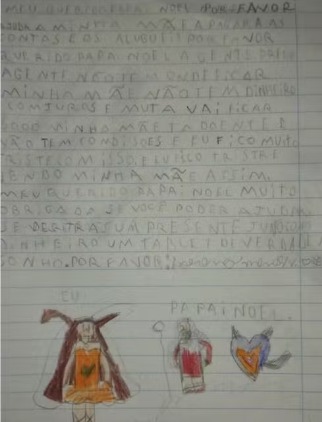 MEU QUERIDO PAPAI NOEL POR FAVOR
AJUDA A MINHA MÃE A PAGAR AS
CONTAS E OS ALUGUEIS POR FAVOR
QUERIDO PAPAI NOEL A GENTE
A GENTE NÃO TEM ONDE FICAR
MINHA MÃE NÃO TEM DINHEIRO
COM JUROS E MUTA VAI FICAR
MINHA MÃE TA DOENTE E
NÃO TEM CONDISOES E EU FICO MUITO
TRISTE COM ISSO EU FICO TRISTE
VENDO MINHA MÃE ASSIM.
MEU QUERIDO PAPAI NOEL MUITO
OBRIGADA SE VOCE PODER AJUDAR
UM PRESENTE
DINHEIRO UM TABLET DE VERDADE
SONHO. POR FAVOR!
EU
PAPAI NOEL.